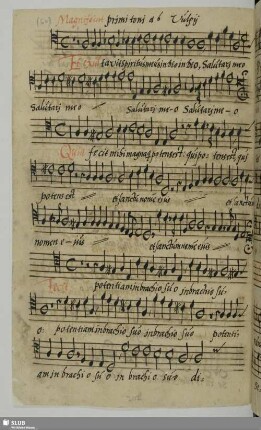 Magnificat primi toni a 6 Vulpij
Et exultavit spiritus meus in deo in deo, Salutari meo
Salutari meo Salutari me-o Salutari me-o
Quia fecit mihi magna potens est qui potens est qui
potens est et sanctu nome eius et sanctum
nomen e-ius et sanctum nome eius
potentiam in brachio suo in brachio suo
o: potentiam in brachio suo in brachio suo potenti-
am in brachi o su o in brachi o suo di-
SLUB